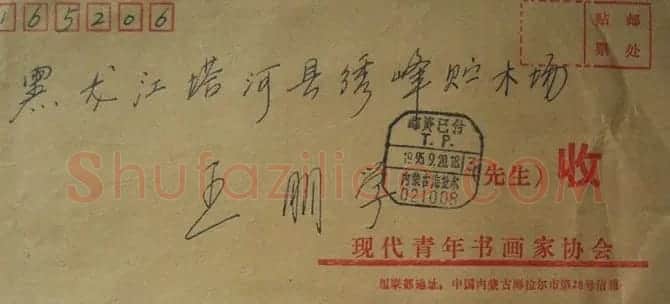 165206
贴邮
票处
黑龙江塔河县绣峰贮木场
邮资已付
T. P.
1995.9.20.18
内蒙古海拉尔
021008
王朋学(先生)收
Shufaziliao.COM
现代青年书画家协会
组联部地址:中国内蒙古海拉尔市第28号信箱